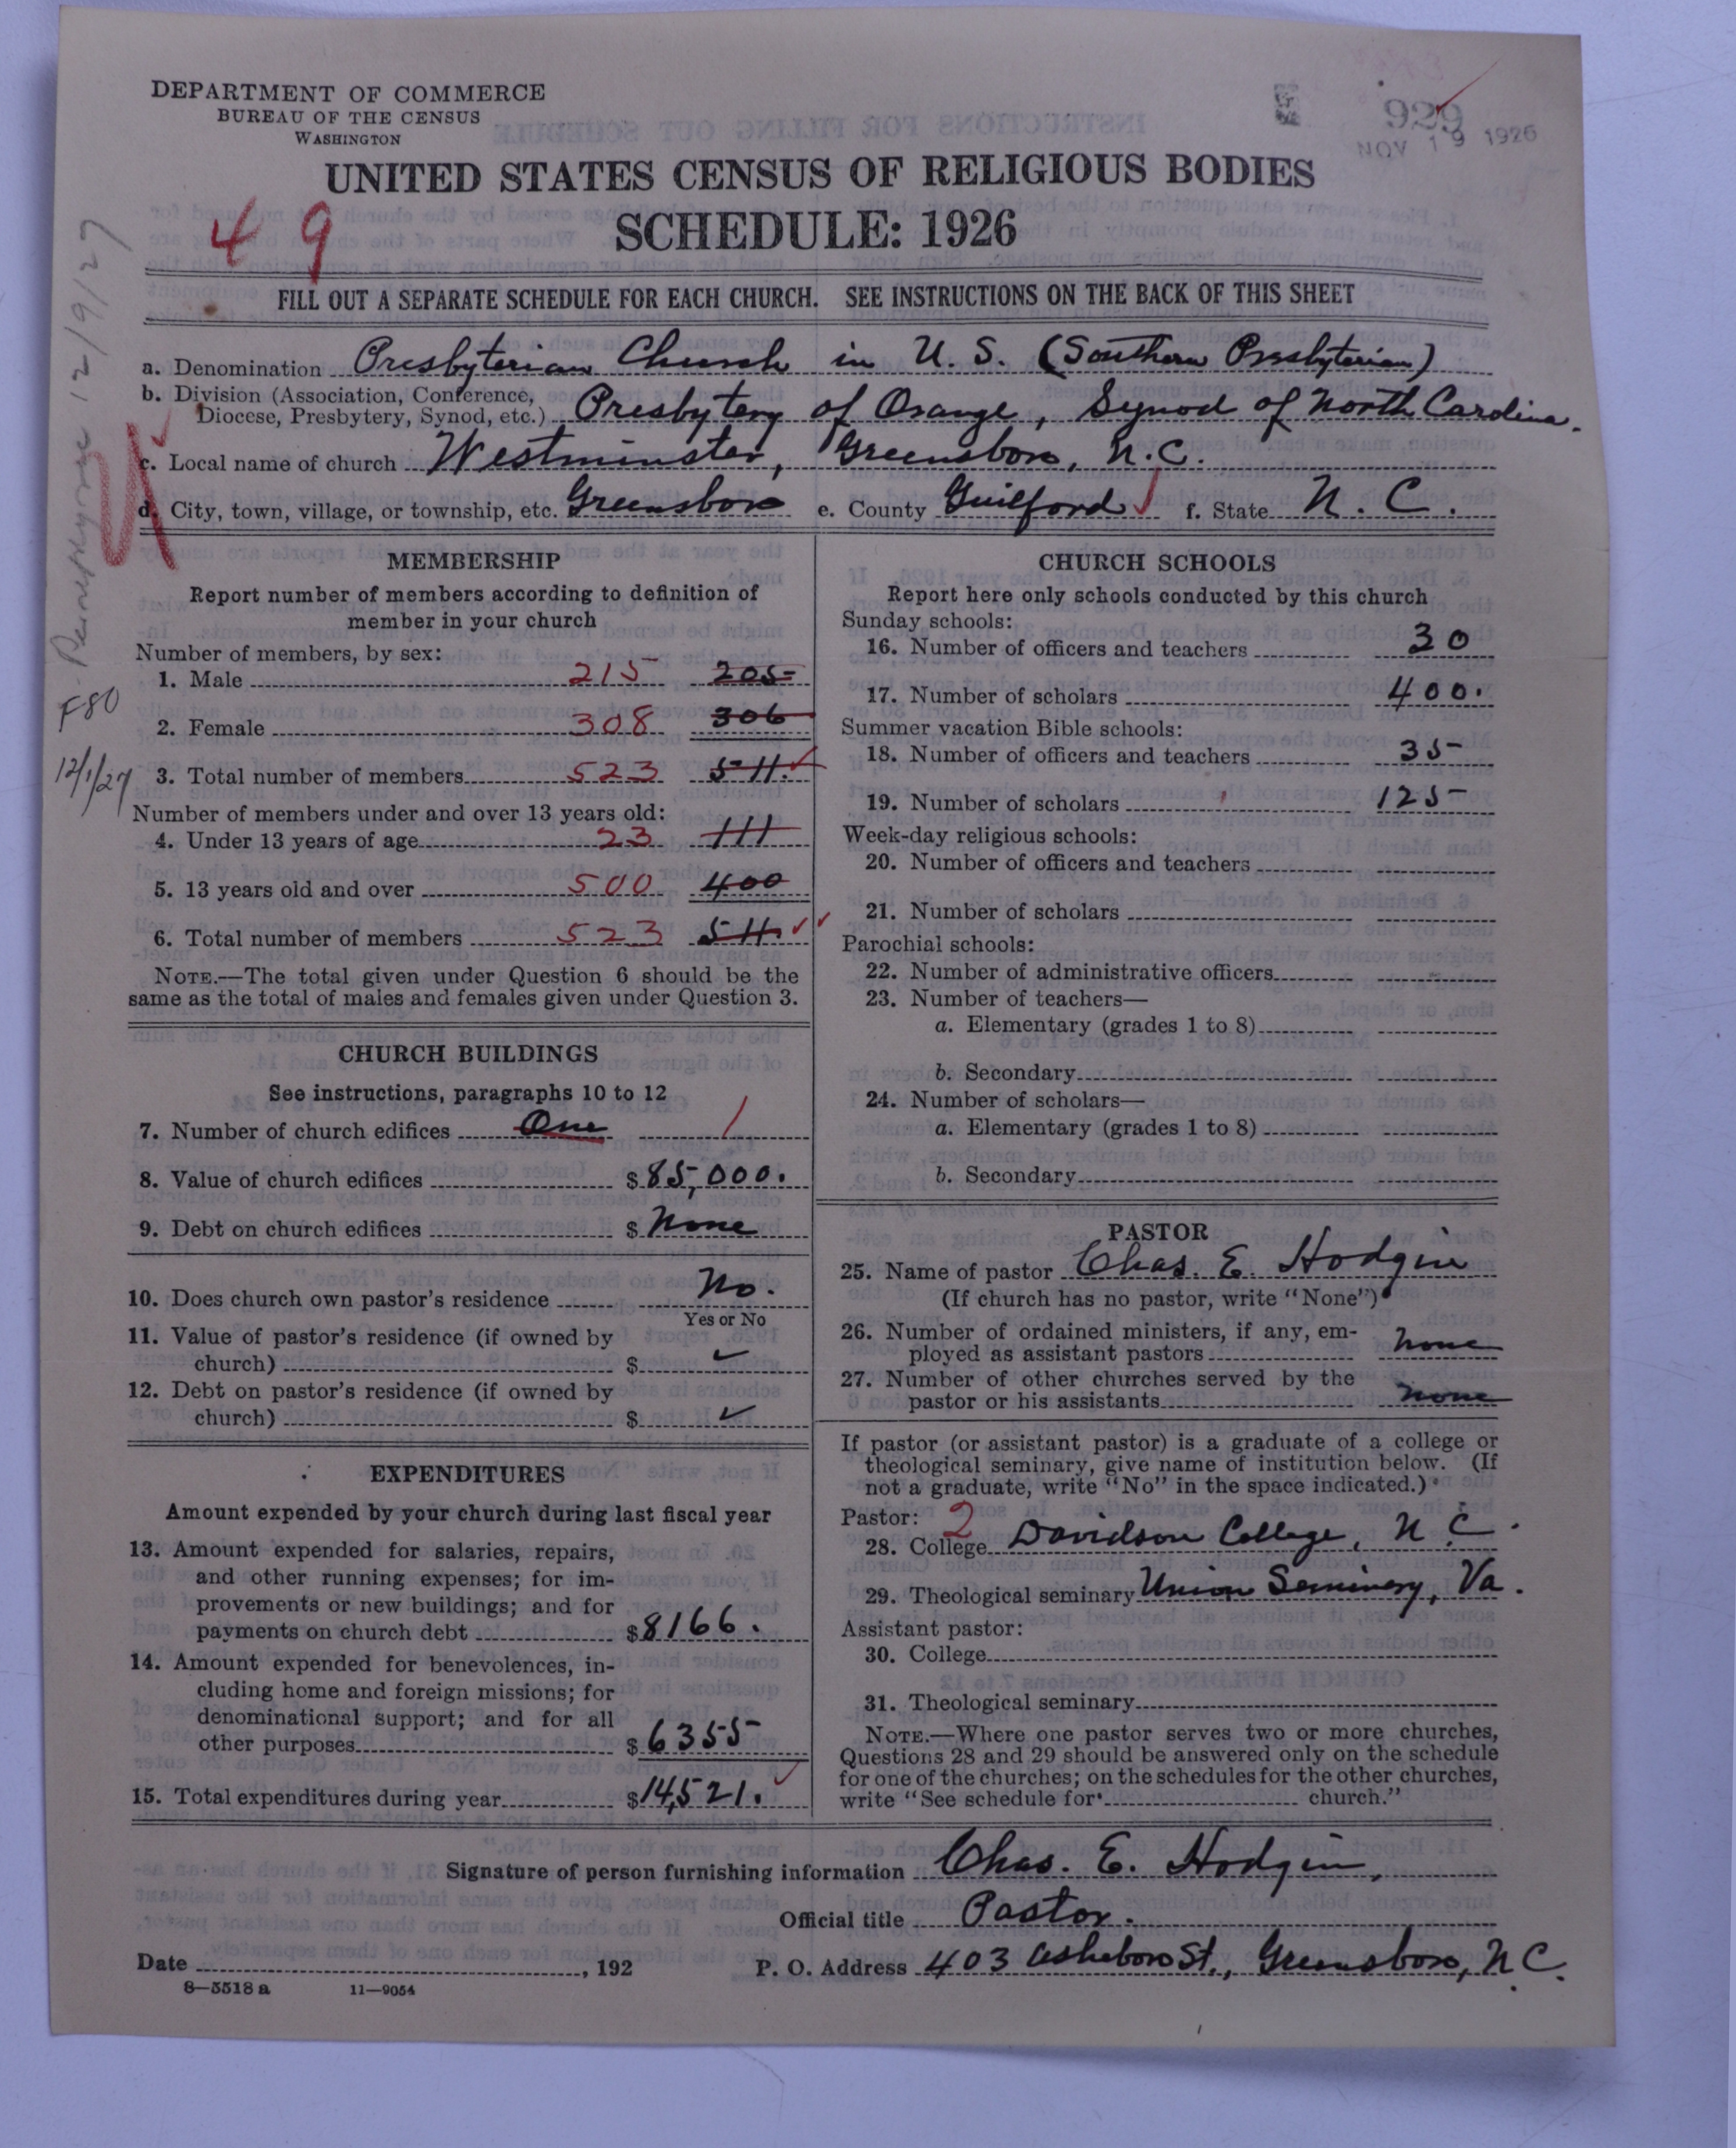 DEPARTMENT OF COMMERCE
BUREAU OF THE CENSUS
WASHINGTON
929
NOV 19 1926
UNITED STATES CENSUS OF RELIGIOUS BODIES
49
SCHEDULE: 1926
FILL OUT A SEPARATE SCHEDULE FOR EACH CHURCH. SEE INSTRUCTIONS ON THE BACK OF THIS SHEET
a. Denomination Presbyterian Church in U. S. (Southern Presbyterian)
b. Division (Association, Conference,
Diocese, Presbytery, Synod, etc.) Presbytery of Orange, Synod of North Carolina.
c. Local name of church Westminster, Greensboro, N.C.
d. City, town, village, or township, etc. Greensboro e. County Guilford f. State N. C.
12/9/27
F80
12/1/27
MEMBERSHIP
Report number of members according to definition of
member in your church
Number of members, by sex:
1. Male 215 205
2. Female 308 306
3. Total number of members 523 511.
Number of members under and over 13 years old:
4. Under 13 years of age 23 111
5. 13 years old and over 500 400
6. Total number of members 523 511.
NOTE.—The total given under Question 6 should be the
same as the total of males and females given under Question 3.
CHURCH BUILDINGS
See instructions, paragraphs 10 to 12
7. Number of church edifices One 1
8. Value of church edifices $ 85,000.
9. Debt on church edifices $ None
10. Does church own pastor's residence No.
Yes or No
11. Value of pastor's residence (if owned by
church) $ ✓
12. Debt on pastor's residence (if owned by
church) $ ✓
EXPENDITURES
Amount expended by your church during last fiscal year
13. Amount expended for salaries, repairs,
and other running expenses; for im-
provements or new buildings; and for
payments on church debt $8166.
14. Amount expended for benevolences, in-
cluding home and foreign missions; for
denominational support; and for all
other purposes $ 6355
15. Total expenditures during year $14,521.
CHURCH SCHOOLS
Report here only schools conducted by this church
Sunday schools:
16. Number of officers and teachers 30
17. Number of scholars 400.
Summer vacation Bible schools:
18. Number of officers and teachers 35
19. Number of scholars 125
Week-day religious schools:
20. Number of officers and teachers
21. Number of scholars
Parochial schools:
22. Number of administrative officers
23. Number of teachers—
a. Elementary (grades 1 to 8)
b. Secondary
24. Number of scholars—
a. Elementary (grades 1 to 8)
b. Secondary
PASTOR
25. Name of pastor Chas. E. Hodgin
(If church has no pastor, write "None")
26. Number of ordained ministers, if any, em-
ployed as assistant pastors None
27. Number of other churches served by the
pastor or his assistants None
If pastor (or assistant pastor) is a graduate of a college or
theological seminary, give name of institution below. (If
not a graduate, write "No" in the space indicated.)
Pastor: 2
28. College Davidson College, N. C.
29. Theological seminary Union Seminary, Va.
Assistant pastor:
30. College
31. Theological seminary
NOTE.—Where one pastor serves two or more churches,
Questions 28 and 29 should be answered only on the schedule
for one of the churches; on the schedules for the other churches,
write "See schedule for church."
Signature of person furnishing information Chas. E. Hodgin,
Official title Pastor.
Date , 192 P. O. Address 403 Asheboro St., Greensboro, N.C.
8—5518 a 11—9054